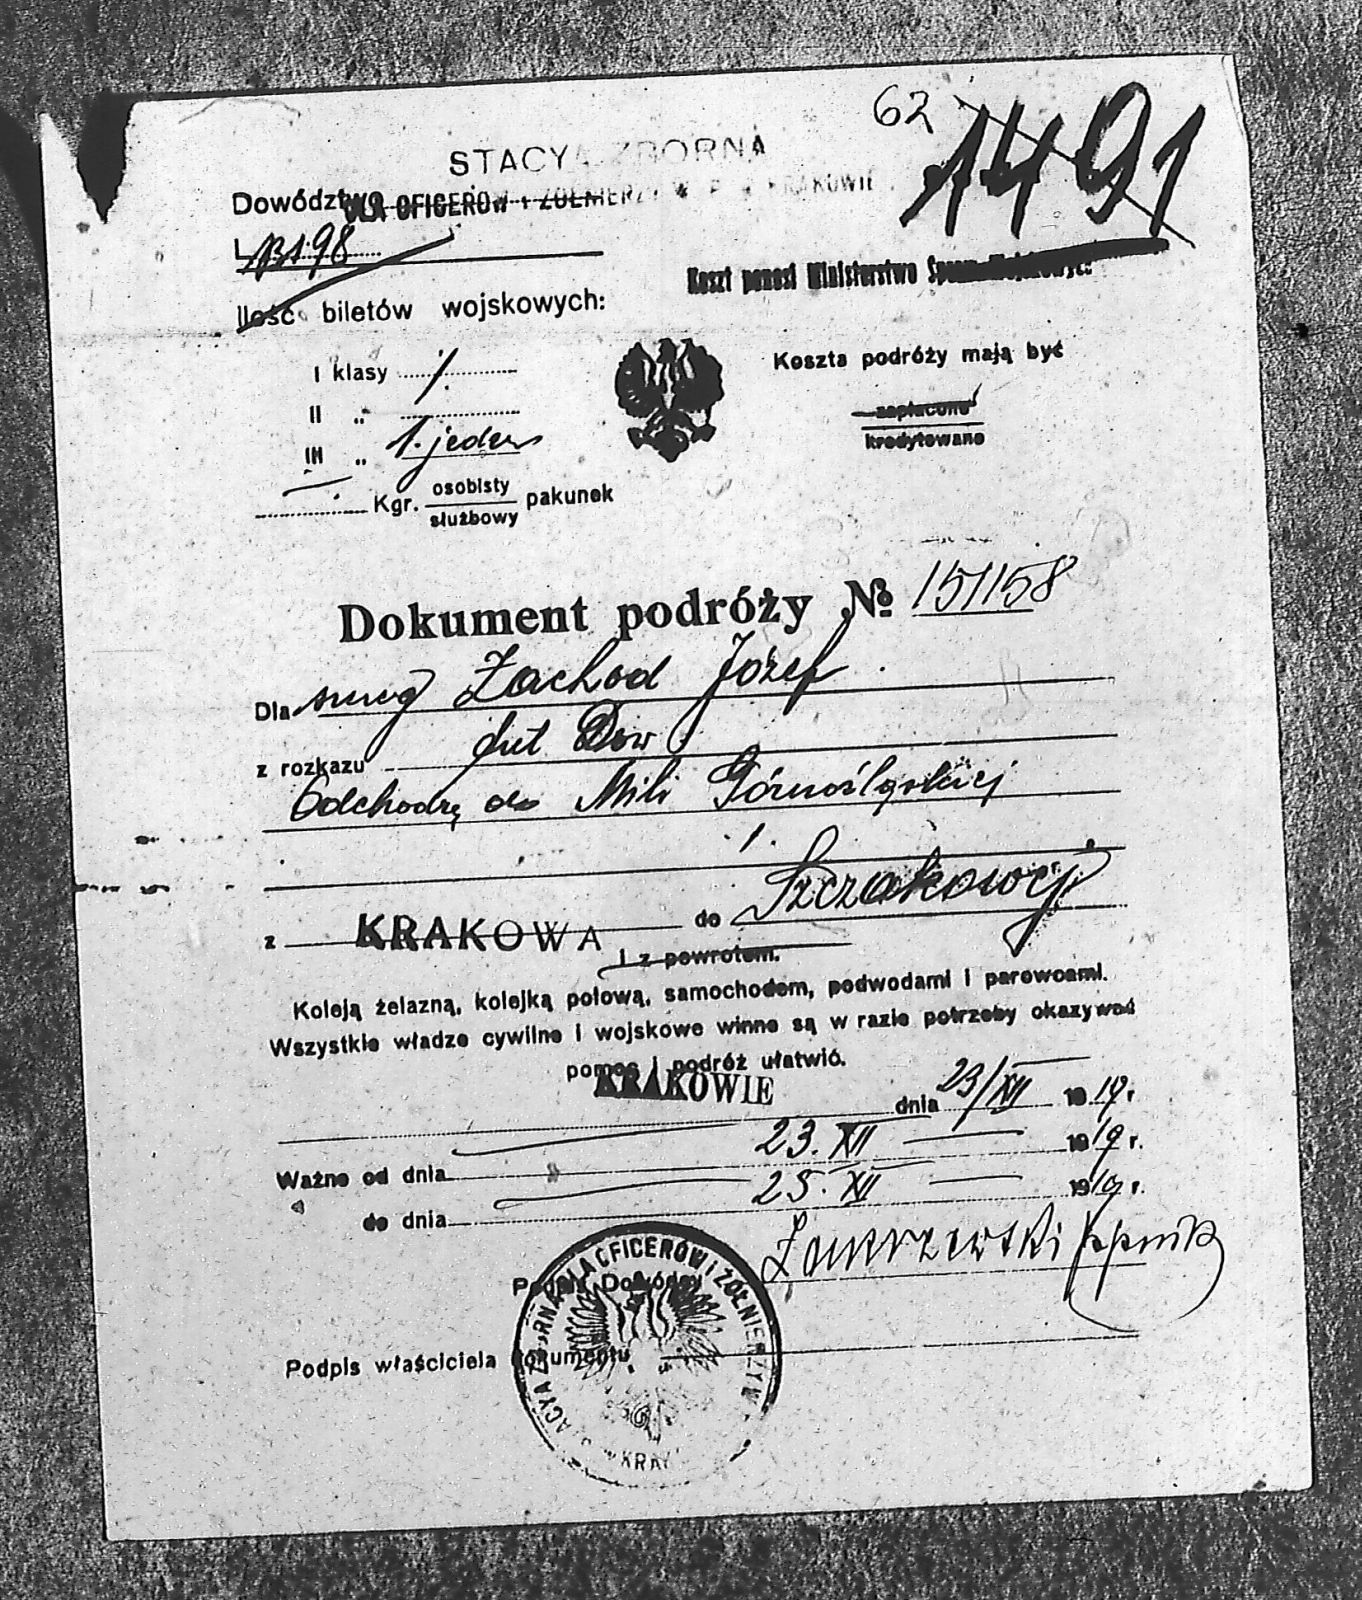 62 1491
STACYA ZBORNA
Dowództwo DLA OFICERÓW I ŻOŁNIERZY W. P. W KRAKOWIE
L 13198
Koszt ponosi Ministerstwo Spraw Wojskowych
Ilość biletów wojskowych:
I klasy /.
Koszta podróży mają być
II „
zapłacone
III „ 1. jeden
kredytowane
Kgr. osobisty pakunek
służbowy
Dokument podróży № 151158
Dla Zachod Józef
z rozkazu Dow
Odchodzę do Mili Górnośląskiej
z KRAKOWA do Szczakowej
i z powrotem.
Koleją żelazną, kolejką polową, samochodem, podwodami i parowcami.
Wszystkie władze cywilne i wojskowe winne są w razie potrzeby okazywać
pomoc i podróż ułatwić.
KRAKOWIE dnia 23/XII 1919 r.
Ważne od dnia 23. XII 1919 r.
do dnia 25. XII 1919 r.
Podpis Dowódcy
Podpis właściciela dokumentu
STACYA ZBORNA DLA OFICERÓW I ŻOŁNIERZY W. P. W KRAK